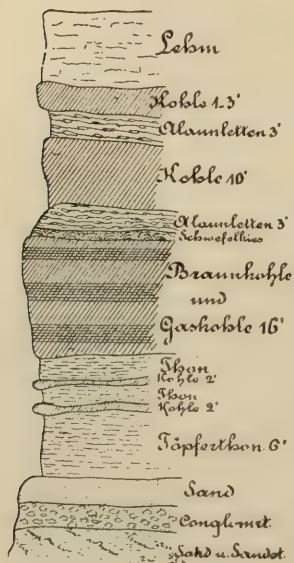 Lehm
Kohle 1-3'
Alaunletten 3'
Kohle 10'
Alaunletten 3'
Schwefelkies
Braunkohle
und
Gaskohle 16'
Thon
Kohle 2'
Thon
Kohle 2'
Töpferthon 6'
Sand
Conglomrt.
Sand u. Sandst.